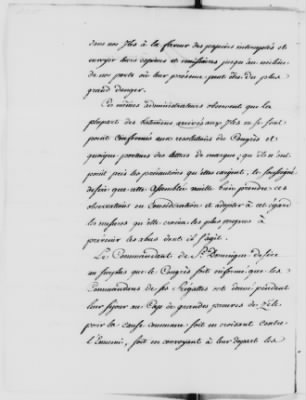 dans nos Isles à la faveur des papiers interceptés et
envoyer leurs espions et émissaires jusqu'au milieu
de nos ports où leur présence peut être du plus
grand danger.
Ces mêmes administrateurs observent que la
plupart des batimens arrivés aux Isles ne se sont
point conformés aux resolutions du Congrès et
quoique porteurs des lettres de marque, qu'ils n'ont
point pris les précautions qu'elles exigent, le soussigné
desire que cette assemblée veuille bien prendre ces
observations en Considération et adopter à cet égard
les mesures qu'elle croira les plus propres à
prévenir les abus dont il s'agit.
Le Commandant de St. Domingue desire
au surplus que le Congrès soit informé que les
Commandans de ses frégattes ont donné pendant
leur séjour au Cap de grandes preuves de Zèle
pour la cause commune soit en croisant contre
l'Ennemi, soit en convoyant à leur depart les